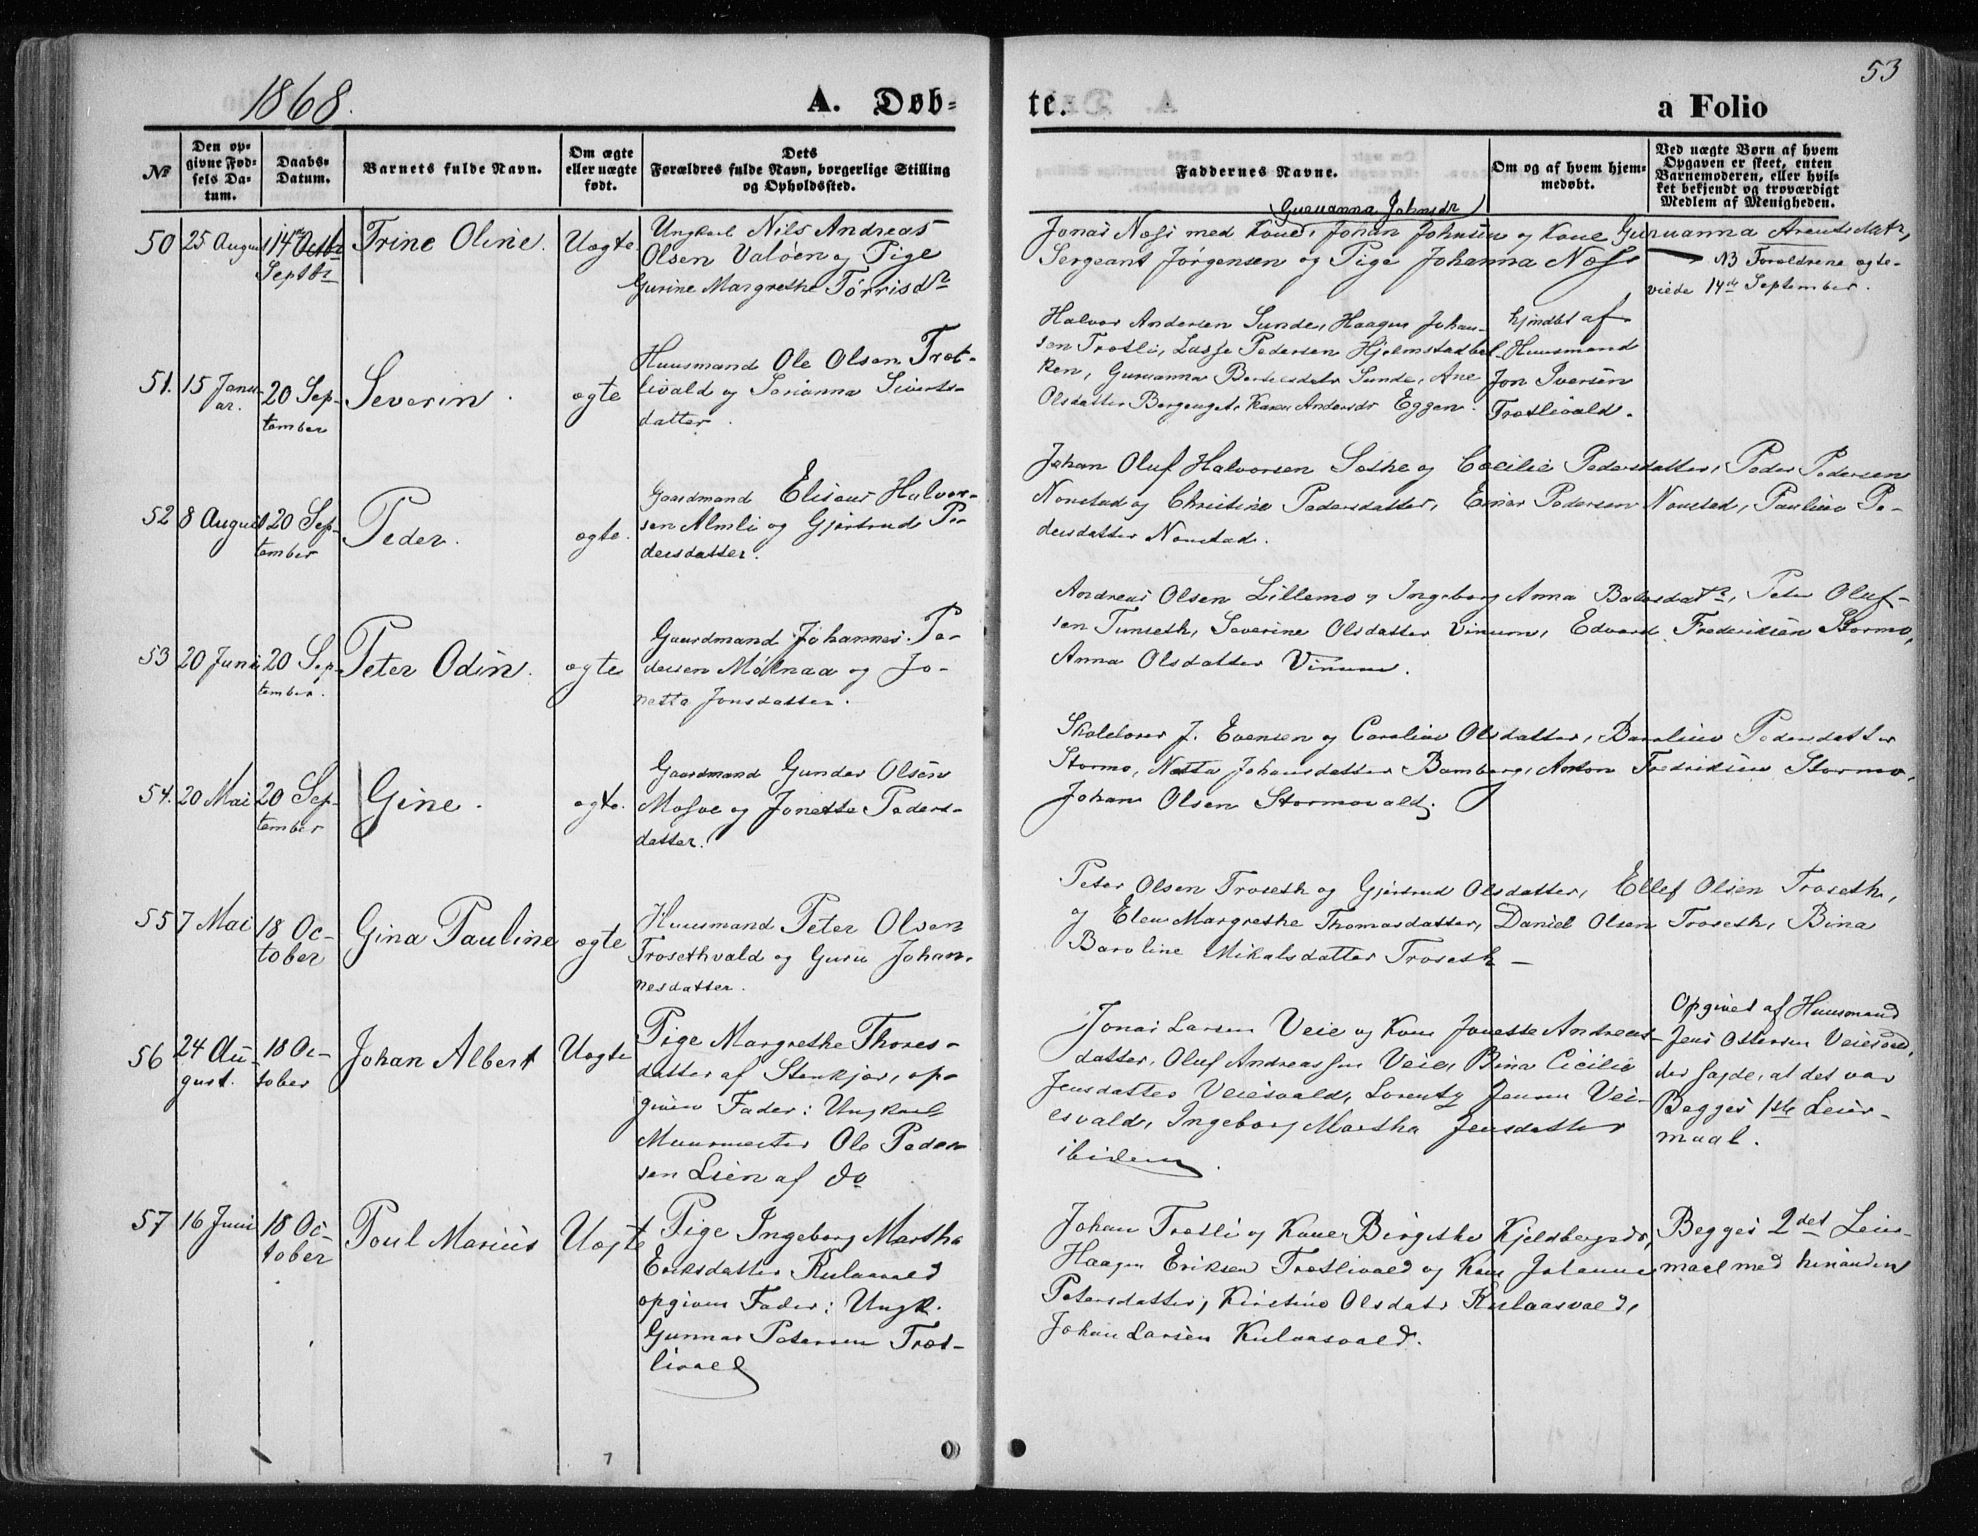 1868.
A. Døb-
te.
a Folio
53
No
Den op-
givne Fød-
sels Da-
tum.
Daabs-
Datum.
Barnets fulde Navn.
Om ægte
eller uægte
født.
Dets
Forældres fulde Navn, borgerlige Stilling
og Opholdssted.
Faddernes Navne.
Om og af hvem hjem-
medøbt.
Ved uægte Børn af hvem
Opgaven er skeet, enten
Barnemoderen, eller hvil-
ket bekjendt og troværdigt
Medlem af Menigheden.
50
25 August
14de Octbr
Septbr
Trine Oline.
Uægte
Ungkarl Nils Andreas
Olsen Valøen og Pige
Gurine Margrethe Tørrisdtr
Guruanna Johnsdr
Jonas Næss med Kone, Johan Johnsen og Kone Guruanna Arentsdatr,
Sergeant Jørgensen og Pige Johanna Næss
NB Forældrene ægte-
viede 14de September.
51.
15 Janu-
ar.
20 Sep-
tember
Severin.
ægte
Huusmand Ole Olsen Træt-
livald og Serianna Siverts-
datter.
Halvor Andersen Sunde, Haagen Johan-
sen Trætli, Lasse Pedersen Hjelmstadbak-
ken, Guruanna Berntsdatr Sunde, Ane
Olsdatter Bergenget, Karen Andersdr Eggen.
hjmdbt af
Huusmand
Jon Iversen
Trætlivald.
52
8 August
20 Sep-
tember
Peder.
ægte.
Gaardmand Eliseus Halvor-
sen Almli og Gjertrud Pe-
dersdatter.
Johan Oluf Halvorsen Sæthe og Cecilie Pedersdatter, Peder Pedersen
Nonstad og Christine Pedersdatter, Einar Pedersen Nonstad, Pauline Pe-
dersdatter Nonstad.
53
20 Juni
20 Sep-
tember.
Peter Odin.
ægte
Gaardmand Johannes Pe-
dersen Møknaa og Jo-
netta Jonsdatter.
Andreas Olsen Lillemo og Ingeborg Anna Baltsdatr, Peter Oluf-
sen Tunseth, Severine Olsdatter Vinum, Edvard Frederiksen Stormo,
Anna Olsdatter Vinum.
54.
20 Mai
20 Sep-
tember
Gine.
ægte.
Gaardmand Gunder Olsen
Mosve og Jonette Peders-
datter.
Skolelærer J. Evensen og Caroline Olsdatter, Baroline Pedersdatter
Stormo, Netta Johansdatter Bamberg, Anton Fredriksen Stormo,
Johan Olsen Stormovald.
55
7 Mai
18 Oc-
tober
Gina Pauline
ægte
Huusmand Peter Olsen
Trosethvald og Guru Johan-
nesdatter.
Peter Olsen Troseth og Gjertrud Olsdatter, Ellef Olsen Troseth,
og Elen Margrethe Thomasdatter, Daniel Olsen Troseth, Bina
Baroline Mikalsdatter Troseth
56
24 Au-
gust.
18 Oc-
tober
Johan Albert
Uægte
Pige Margrethe Thores-
datter af Stenkjær, op-
given Fader: Ungkarl
Muurmester Ole Peder-
sen Lien af do
Jonas Larsen Veie og Kone Jonette Andreas-
datter, Oluf Andreassen Veie, Bina Cicilie
Jensdatter Veiesvald, Lorentz Jensen Vei-
esvald, Ingeborg Martha Jensdatter
ibidem.
Opgivet af Huusmand
Jens Ottersen Veiesvald,
der sagde, at det var
Begges 1ste Leier-
maal.
57
16 Juni
18 Oc-
tober
Poul Marius
Uægte
Pige Ingeborg Martha
Eriksdatter Kulaasvald
opgiven Fader: Ungk.
Gunnar Petersen Træt-
livald
Johan Trætli og Kone Birgithe Kjeldbergsdr,
Haagen Eriksen Trætlivald og Kone Johanne
Petersdatter, Kirstine Olsdatr Kulaasvald,
Johan Larsen Kulaasvald.
Begges 2det Leier-
maal med hinanden